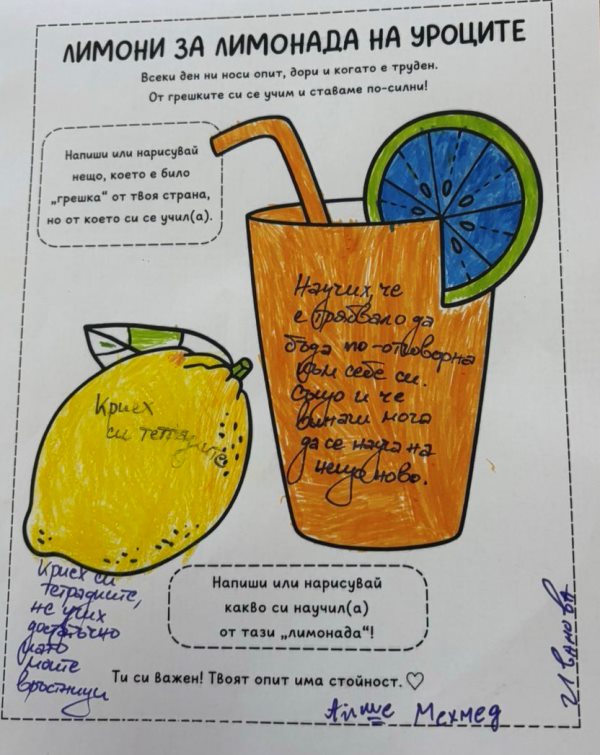 ЛИМОНИ ЗА ЛИМОНАДА НА УРОЦИТЕ
Всеки ден ни носи опит, дори и когато е труден.
От грешките си се учим и ставаме по-силни!
Напиши или нарисувай
нещо, което е било
„грешка“ от твоя страна,
но от което си се учил(а).
Научих, че
е трябвало да
бъда по-отговорна
към себе си.
Също и че
винаги мога
да се науча на
нещо ново.
Криех
си тетрадките
Криех си
тетрадките,
не учих
достатъчно
като
моите
връстници
Напиши или нарисувай
какво си научил(а)
от тази „лимонада“!
Ти си важен! Твоят опит има стойност.♡
Айше Мехмед